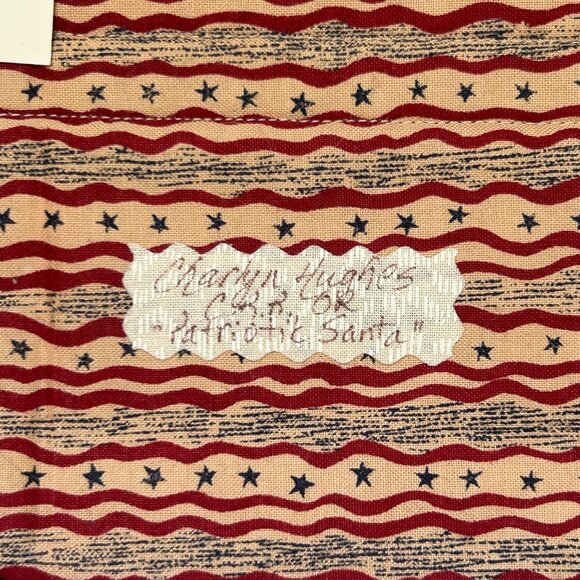 Charlyn Hughes
OR
"Patriotic Santa"